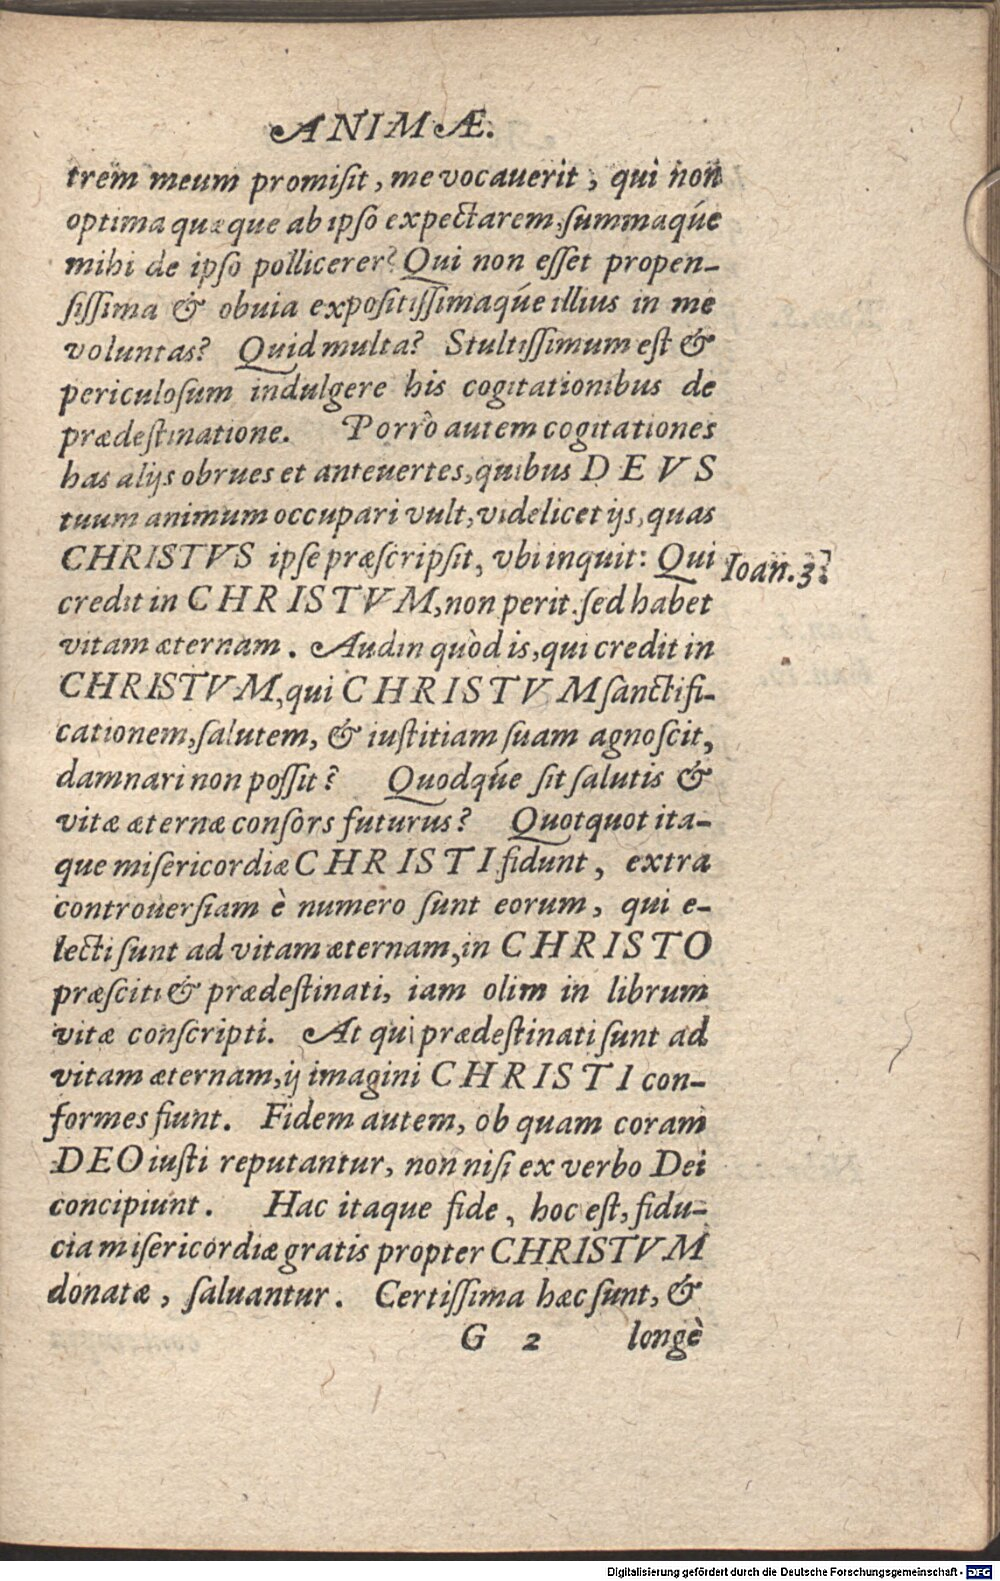 ANIMÆ.
trem meum promisit, me vocauerit, qui non
optima quæque ab ipso expectarem, summaqúe
mihi de ipso pollicerer? Qui non esset propen-
sissima & obuia expositissimaqúe illius in me
voluntas? Quid multa? Stultissimum est &
periculosum indulgere his cogitationibus de
prædestinatione. Porrò autem cogitationes
has alijs obrues et anteuertes, quibus DEVS
tuum animum occupari vult, videlicet ijs, quas
CHRISTVS ipse præscripsit, vbi inquit: Qui
Ioan. 3.
credit in CHRISTVM, non perit. sed habet
vitam æternam. Audin quòd is, qui credit in
CHRISTVM, qui CHRISTVM sanctifi-
cationem, salutem, & iustitiam suam agnoscit,
damnari non possit? Quodqúe sit salutis &
vitæ æternæ consors futurus? Quotquot ita-
que misericordiæ CHRISTI fidunt, extra
controuersiam è numero sunt eorum, qui e-
lecti sunt ad vitam æternam, in CHRISTO
præsciti & prædestinati, iam olim in librum
vitæ conscripti. At qui prædestinati sunt ad
vitam æternam, ij imagini CHRISTI con-
formes fiunt. Fidem autem, ob quam coram
DEO iusti reputantur, non nisi ex verbo Dei
concipiunt. Hac itaque fide, hoc est, fidu-
cia misericordiæ gratis propter CHRISTVM
donatæ, saluantur. Certissima hæc sunt, &
G 2 longè
Digitalisierung gefördert durch die Deutsche Forschungsgemeinschaft - DFG